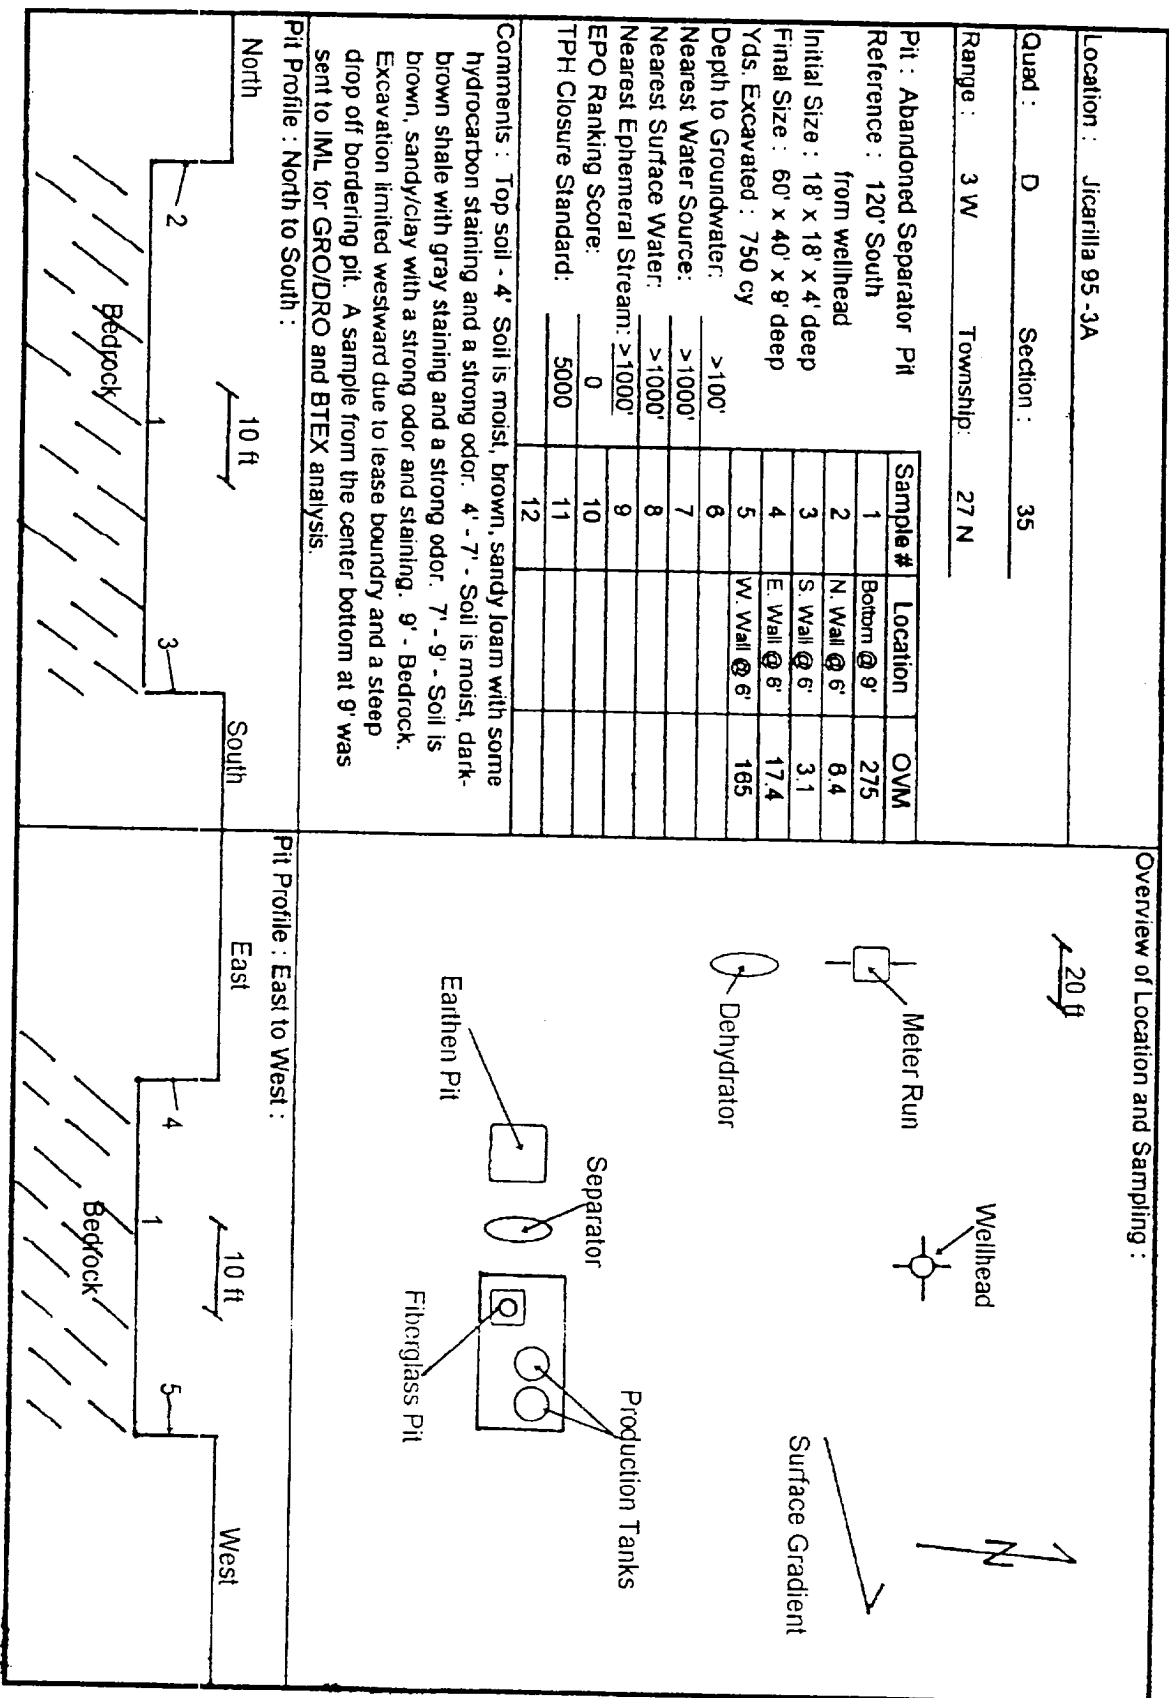 Location : Jicarilla 95 -3A
Quad : D Section : 35
Range : 3 W Township: 27 N
Pit : Abandoned Separator Pit
Reference : 120' South
from wellhead
Initial Size : 18' x 18' x 4' deep
Final Size : 60' x 40' x 9' deep
Yds. Excavated : 750 cy
Depth to Groundwater: >100'
Nearest Water Source: >1000'
Nearest Surface Water: >1000'
Nearest Ephemeral Stream: >1000'
EPO Ranking Score: 0
TPH Closure Standard: 5000
Sample # Location OVM
1 Bottom @ 9' 275
2 N. Wall @ 6' 6.4
3 S. Wall @ 6' 3.1
4 E. Wall @ 6' 17.4
5 W. Wall @ 6' 165
6
7
8
9
10
11
12
Comments : Top soil - 4' Soil is moist, brown, sandy loam with some
hydrocarbon staining and a strong odor. 4' - 7' - Soil is moist, dark-
brown shale with gray staining and a strong odor. 7' - 9' - Soil is
brown, sandy/clay with a strong odor and staining. 9' - Bedrock.
Excavation limited westward due to lease boundry and a steep
drop off bordering pit. A sample from the center bottom at 9' was
sent to IML for GRO/DRO and BTEX analysis.
Overview of Location and Sampling :
20 ft
N
Meter Run
Wellhead
Surface Gradient
Dehydrator
Separator
Production Tanks
Earthen Pit
Fiberglass Pit
Pit Profile : North to South :
North
10 ft
South
2
1
3
Bedrock
Pit Profile : East to West :
East
10 ft
West
4
1
5
Bedrock